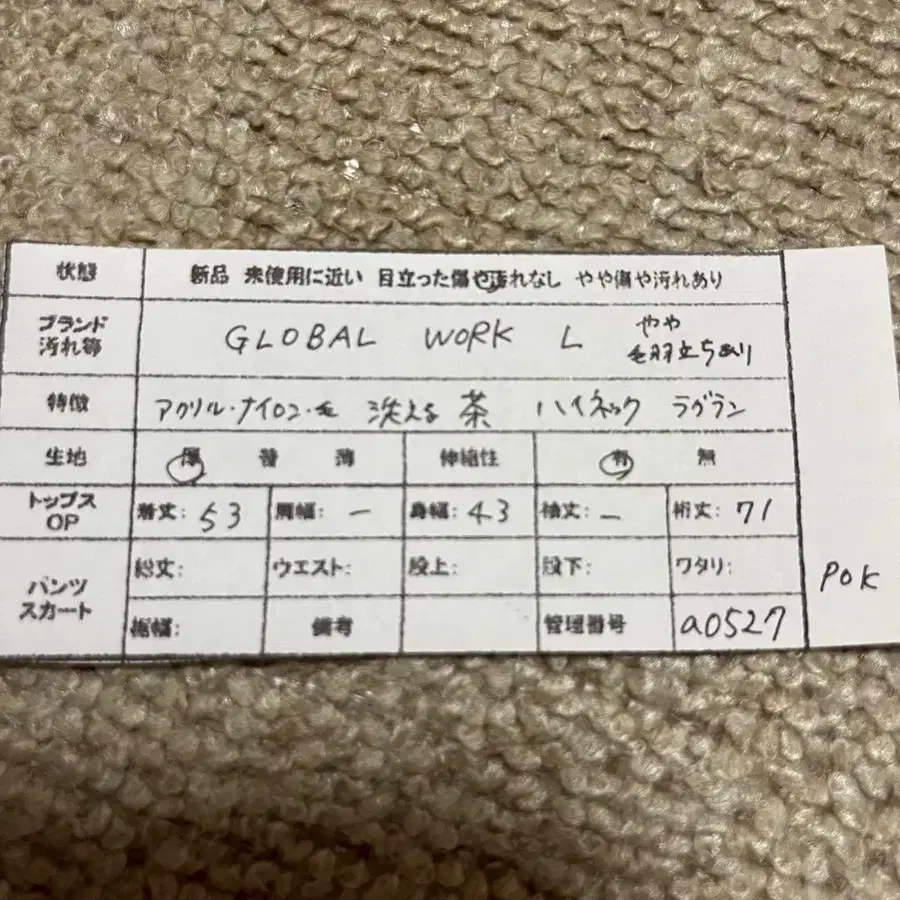 状態 新品 未使用に近い 目立った傷や汚れなし やや傷や汚れあり
ブランド 汚れ等 GLOBAL WORK L やや 毛羽立ちあり
特徴 アクリル・ナイロン・毛 洗える 茶 ハイネック ラグラン
生地 厚 普 薄 伸縮性 有 無
トップス OP 着丈: 53 肩幅: － 身幅: 43 袖丈: － 裄丈: 71
パンツ スカート 総丈: ウエスト: 股上: 股下: ワタリ:
裾幅: 備考 管理番号 a0527
POK